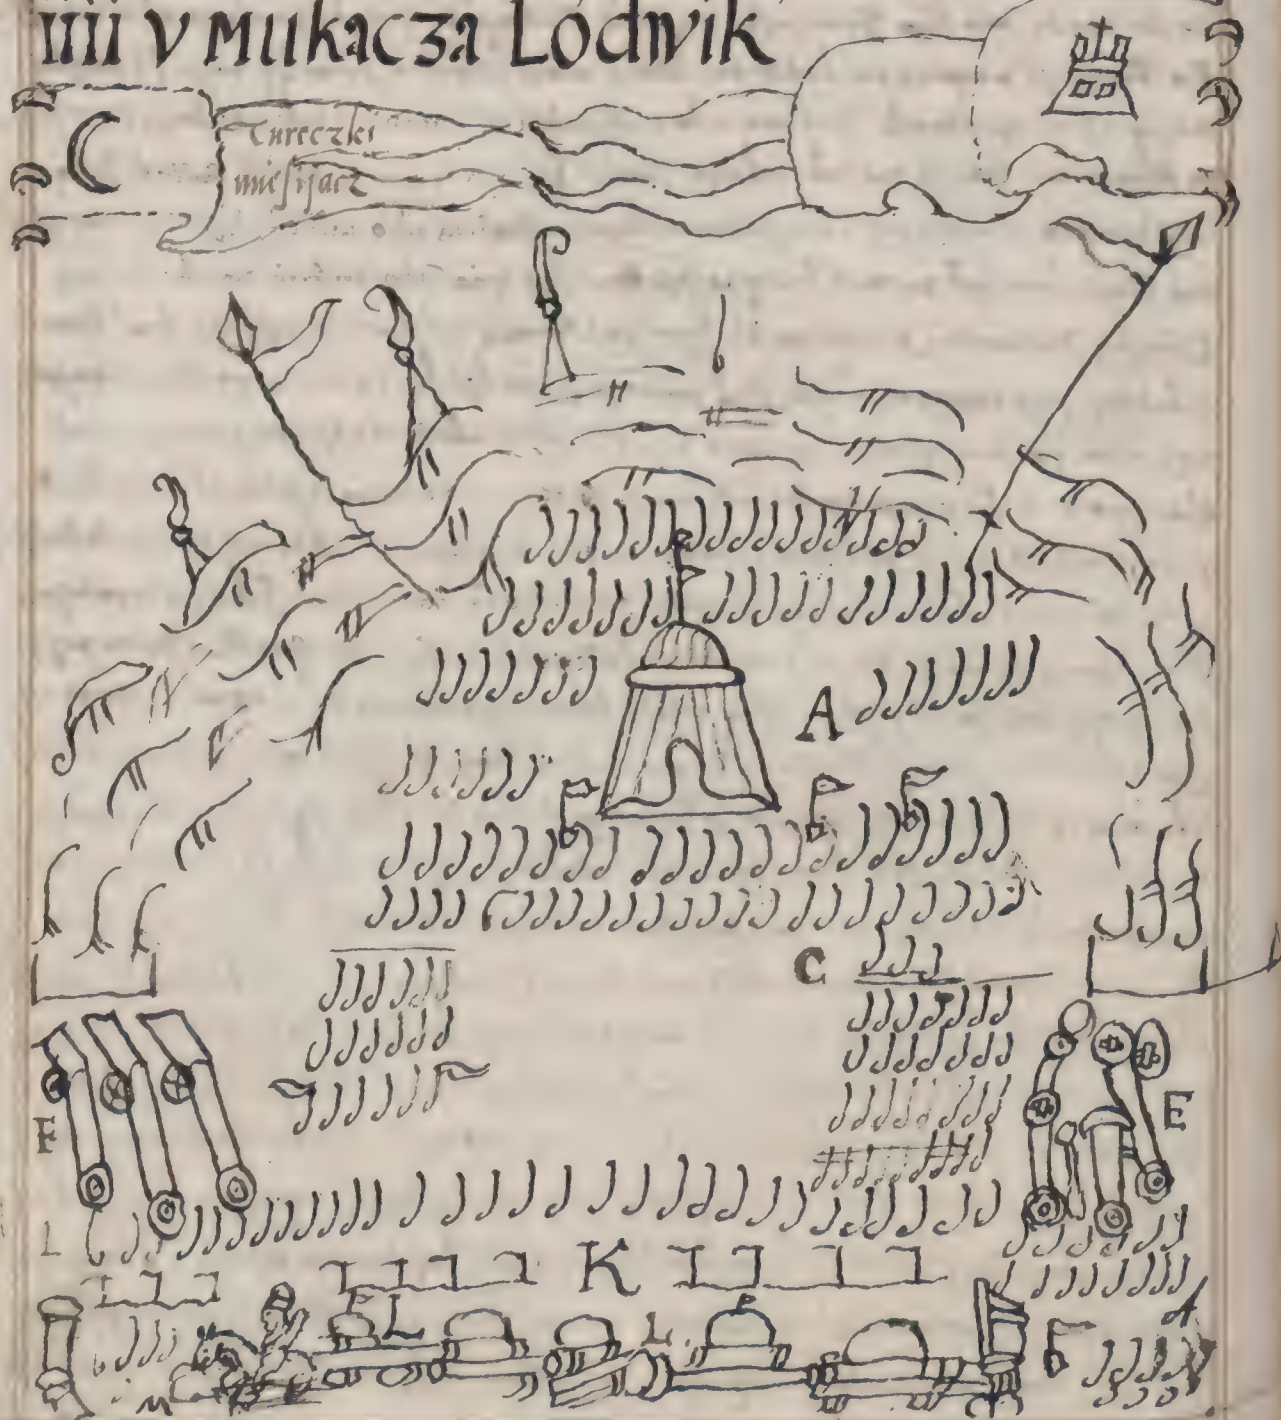 iiii v Mukacza Lodwik
Tureczki
miesijacz
A
C
E
F
L
K
L
L
A